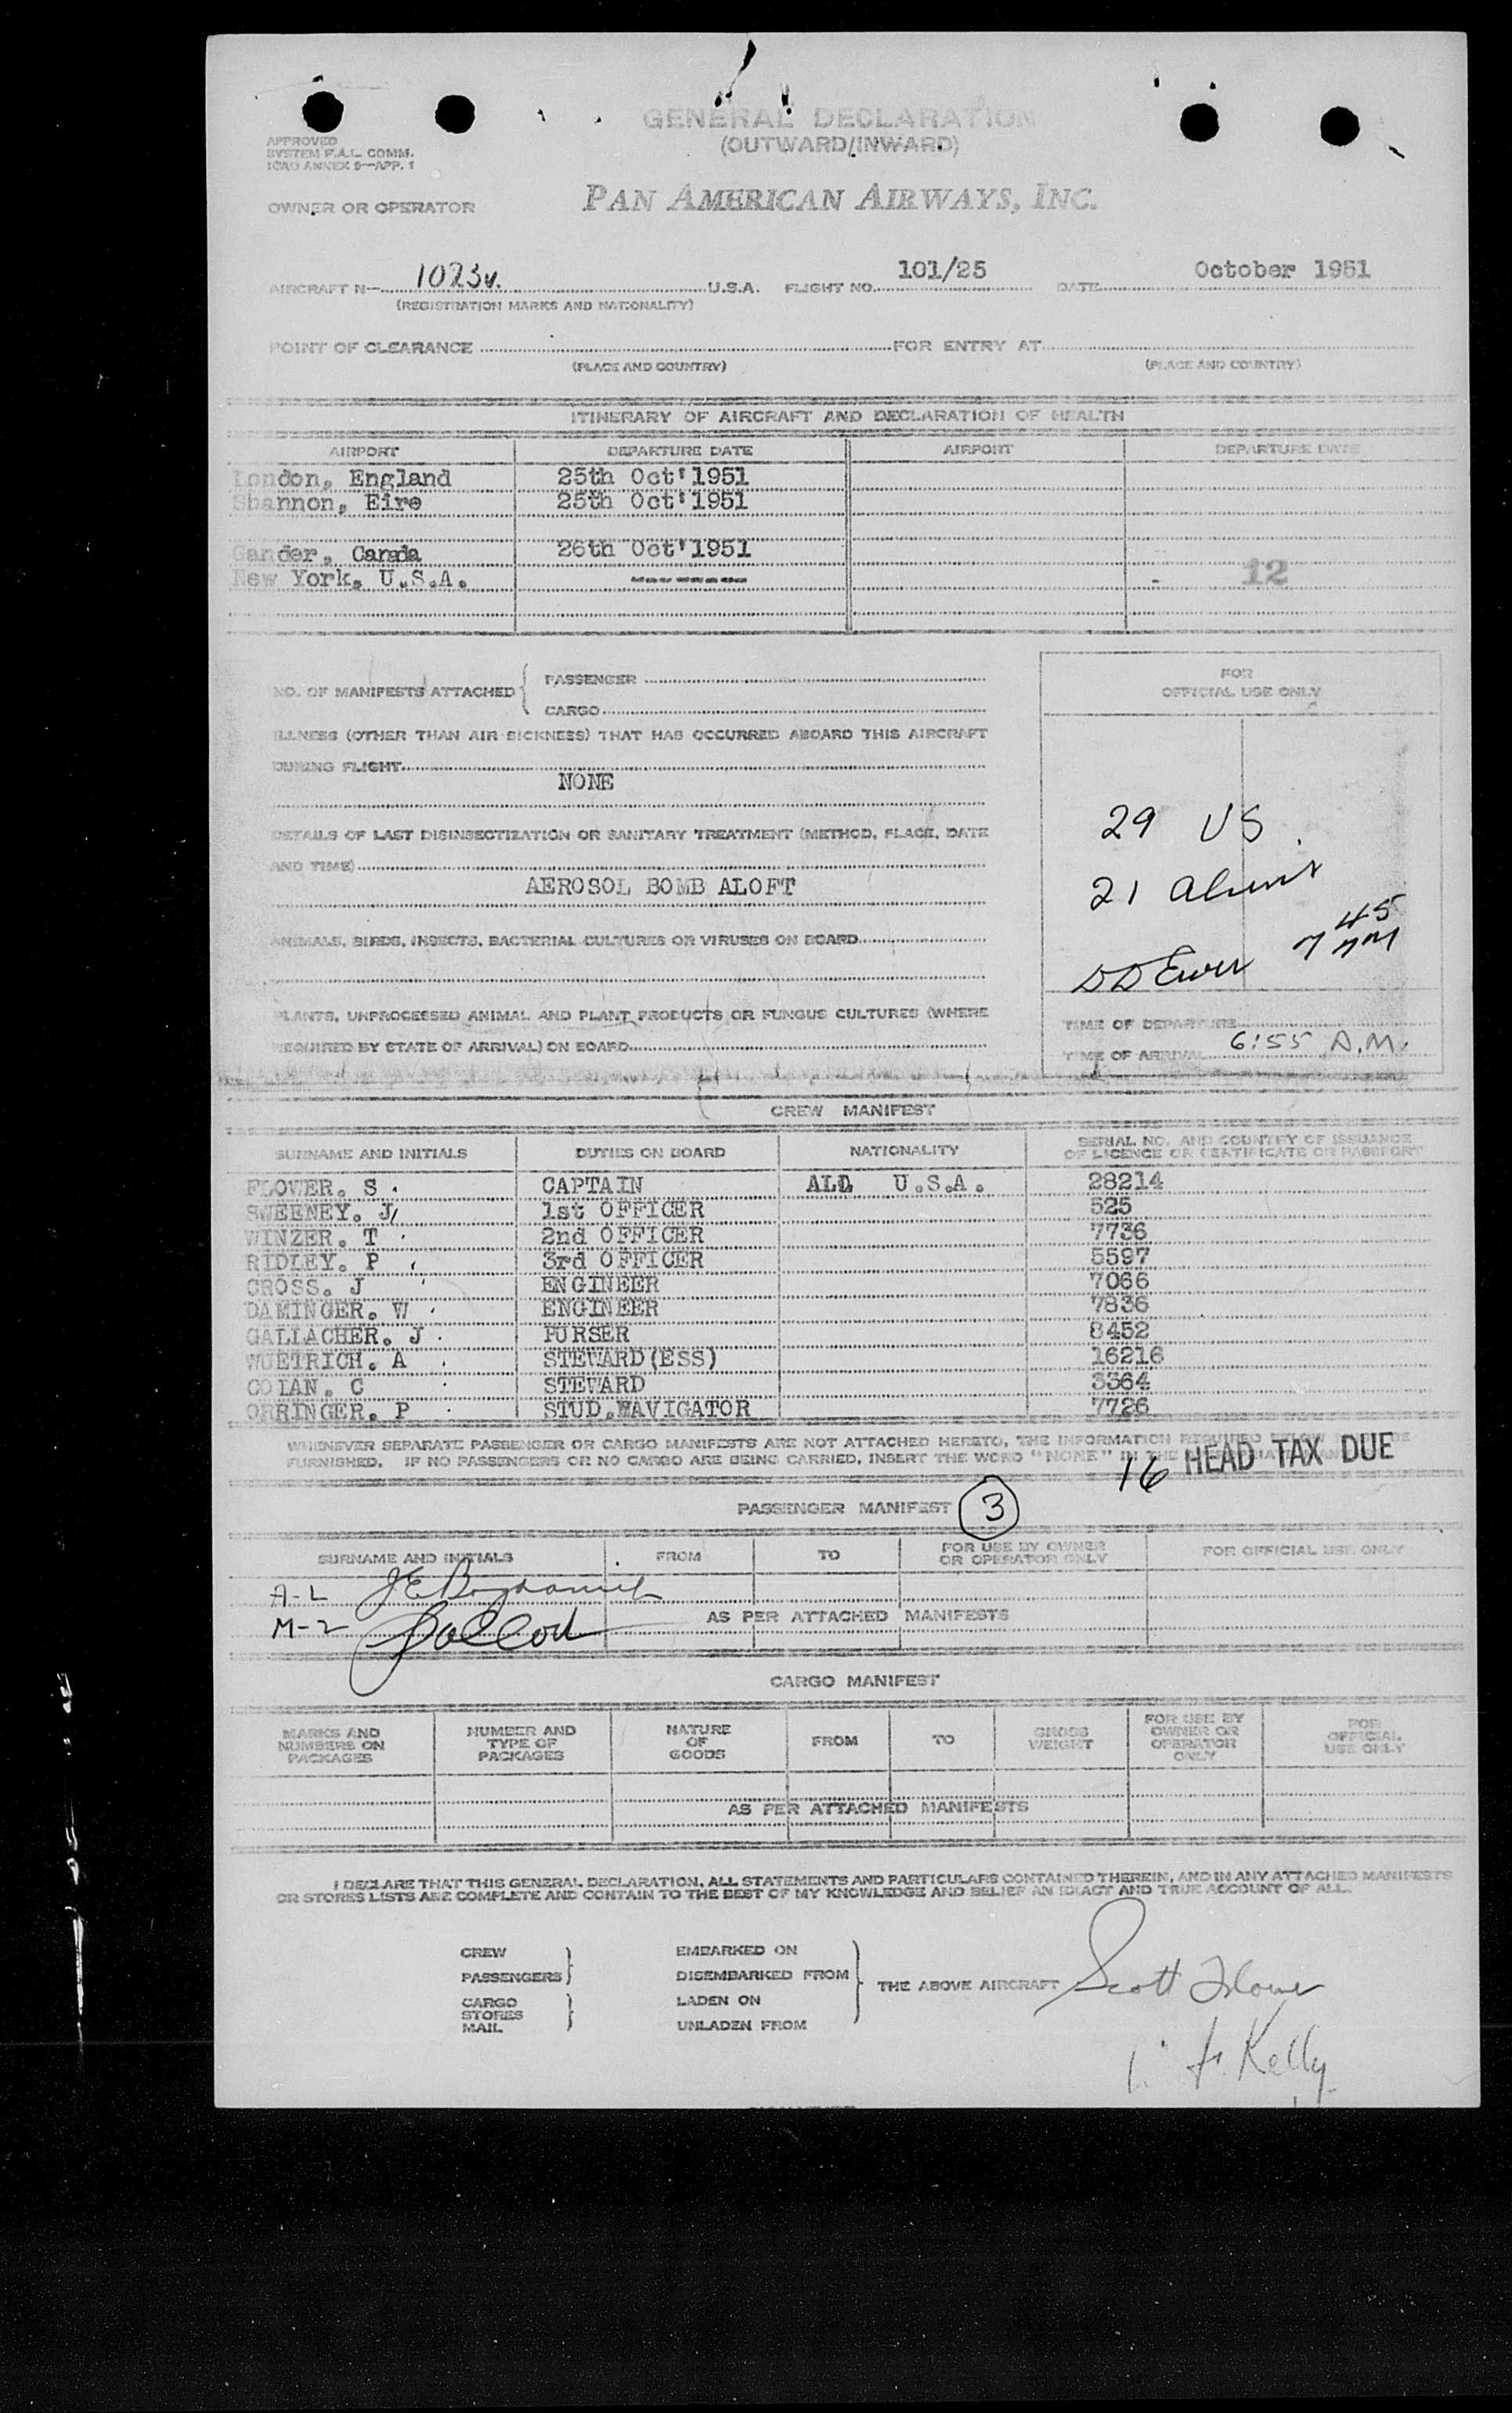 GENERAL DECLARATION
(OUTWARD/INWARD)
APPROVED
SYSTEM F.A.L. COMM.
ICAO ANNEX 9—APP. 1
OWNER OR OPERATOR PAN AMERICAN AIRWAYS, INC.
AIRCRAFT N— 1023v. U.S.A. FLIGHT NO. 101/25 DATE October 1951
(REGISTRATION MARKS AND NATIONALITY)
POINT OF CLEARANCE FOR ENTRY AT
(PLACE AND COUNTRY) (PLACE AND COUNTRY)
ITINERARY OF AIRCRAFT AND DECLARATION OF HEALTH
AIRPORT DEPARTURE DATE AIRPORT DEPARTURE DATE
London, England 25th Oct'1951
Shannon, Eire 25th Oct'1951
Gander, Canada 26th Oct'1951
New York, U.S.A. 12
NO. OF MANIFESTS ATTACHED { PASSENGER
CARGO
FOR
OFFICIAL USE ONLY
ILLNESS (OTHER THAN AIR SICKNESS) THAT HAS OCCURRED ABOARD THIS AIRCRAFT
DURING FLIGHT
NONE
DETAILS OF LAST DISINSECTIZATION OR SANITARY TREATMENT (METHOD, PLACE, DATE
AND TIME)
AEROSOL BOMB ALOFT
ANIMALS, BIRDS, INSECTS, BACTERIAL CULTURES OR VIRUSES ON BOARD
PLANTS, UNPROCESSED ANIMAL AND PLANT PRODUCTS OR FUNGUS CULTURES (WHERE
REQUIRED BY STATE OF ARRIVAL) ON BOARD
29 US
21 Aliens
7 45 AM
TIME OF DEPARTURE
TIME OF ARRIVAL 6:55 A.M.
CREW MANIFEST
SURNAME AND INITIALS DUTIES ON BOARD NATIONALITY SERIAL NO. AND COUNTRY OF ISSUANCE
OF LICENCE OR CERTIFICATE OR PASSPORT
FLOWER. S CAPTAIN ALL U.S.A. 28214
SWEENEY. J 1st OFFICER 525
WINZER. T 2nd OFFICER 7736
RIDLEY. P 3rd OFFICER 5597
CROSS. J ENGINEER 7066
DAMINGER. W ENGINEER 7836
GALLACHER. J PURSER 8452
WUETRICH. A STEWARD(ESS) 16216
COLAN. C STEWARD 3364
ORRINGER. P STUD.NAVIGATOR 7726
WHENEVER SEPARATE PASSENGER OR CARGO MANIFESTS ARE NOT ATTACHED HERETO, THE INFORMATION REQUIRED BELOW
FURNISHED. IF NO PASSENGERS OR NO CARGO ARE BEING CARRIED, INSERT THE WORD "NONE" IN THE
16 HEAD TAX DUE
PASSENGER MANIFEST 3
SURNAME AND INITIALS FROM TO FOR USE BY OWNER
OR OPERATOR ONLY FOR OFFICIAL USE ONLY
A-L
M-2
AS PER ATTACHED MANIFESTS
CARGO MANIFEST
MARKS AND
NUMBERS ON
PACKAGES
NUMBER AND
TYPE OF
PACKAGES
NATURE
OF
GOODS
FROM
TO
GROSS
WEIGHT
FOR USE BY
OWNER OR
OPERATOR
ONLY
FOR
OFFICIAL
USE ONLY
AS PER ATTACHED MANIFESTS
I DECLARE THAT THIS GENERAL DECLARATION, ALL STATEMENTS AND PARTICULARS CONTAINED THEREIN, AND IN ANY ATTACHED MANIFESTS
OR STORES LISTS ARE COMPLETE AND CONTAIN TO THE BEST OF MY KNOWLEDGE AND BELIEF AN EXACT AND TRUE ACCOUNT OF ALL.
CREW
PASSENGERS
CARGO
STORES
MAIL
EMBARKED ON
DISEMBARKED FROM
LADEN ON
UNLADEN FROM
THE ABOVE AIRCRAFT Scott Flower
Kelly